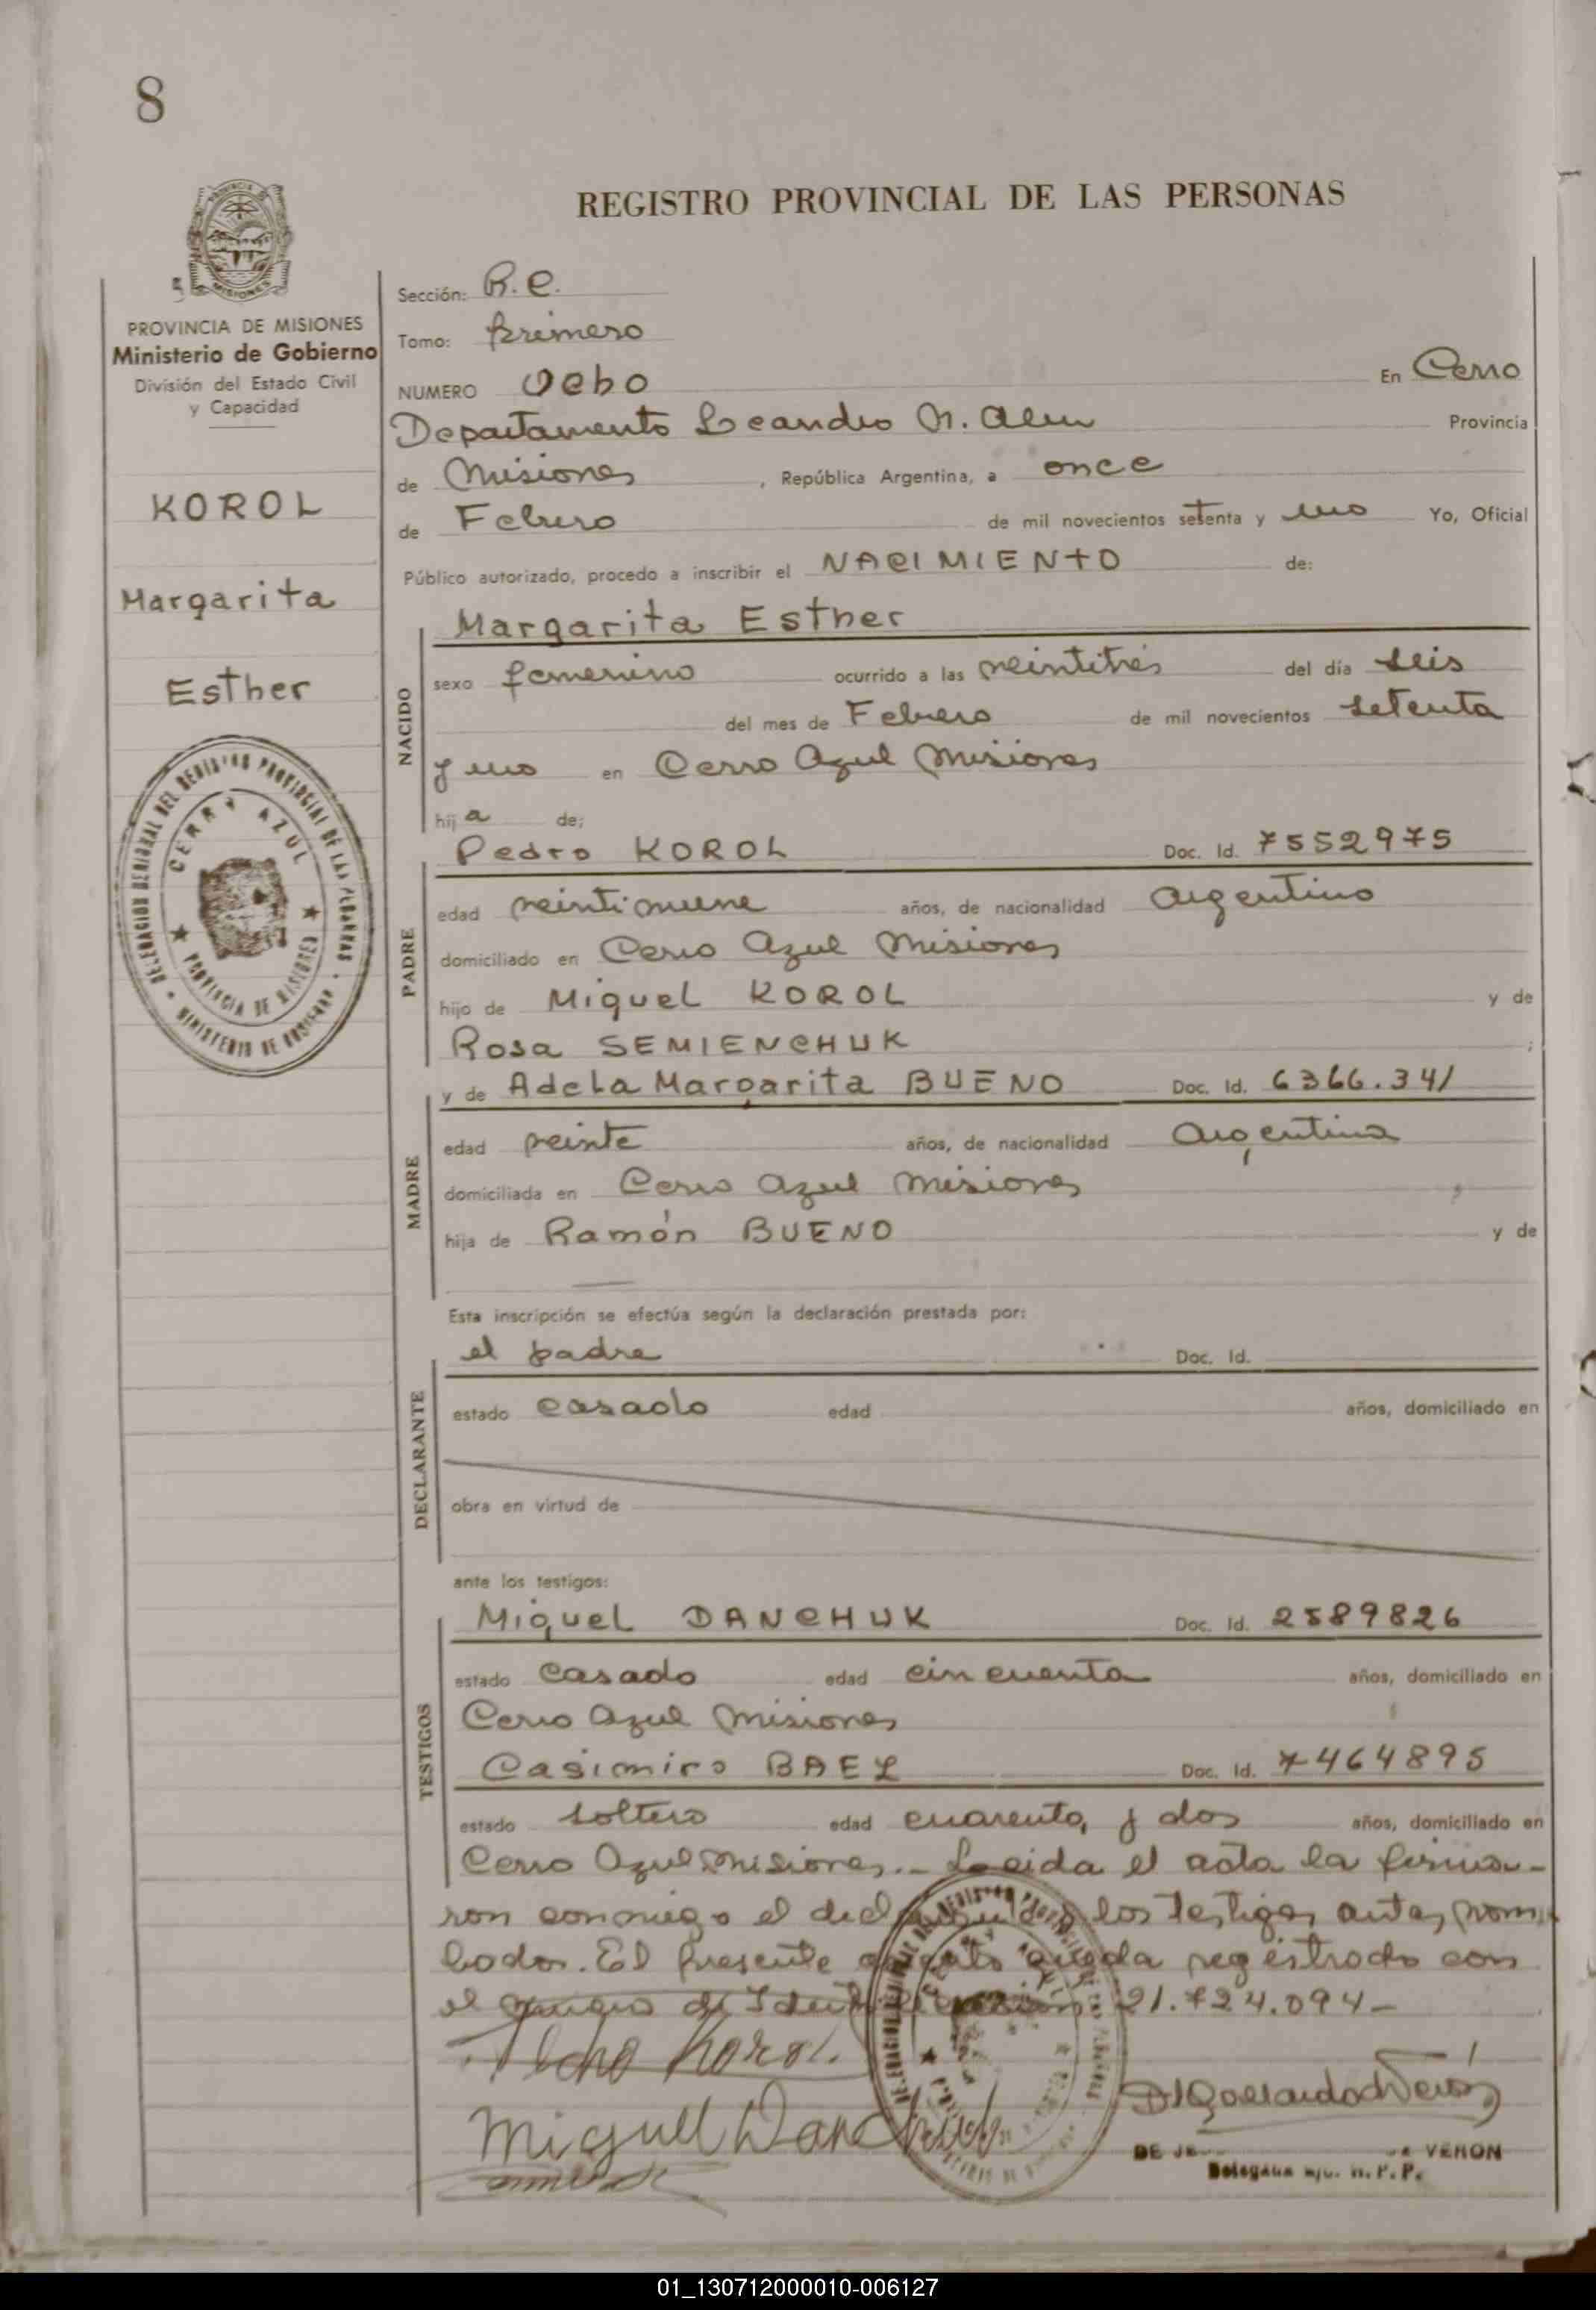 8
REGISTRO PROVINCIAL DE LAS PERSONAS
MISIONES
PROVINCIA DE MISIONES
Ministerio de Gobierno
División del Estado Civil
y Capacidad
KOROL
Margarita
Esther
CERRO AZUL
PROVINCIA DE MISIONES
Sección: R.C.
Tomo: Primero
NUMERO Ocho En Cerro
Departamento Leandro N. Alem Provincia
de Misiones , República Argentina, a once
de Febrero de mil novecientos setenta y uno Yo, Oficial
Público autorizado, procedo a inscribir el NACIMIENTO de:
NACIDO
Margarita Esther
sexo femenino ocurrido a las veintitrés del día seis
del mes de Febrero de mil novecientos setenta
y uno en Cerro Azul Misiones
hija de;
PADRE
Pedro KOROL Doc. Id. 7552975
edad veintinueve años, de nacionalidad argentino
domiciliado en Cerro Azul Misiones
hijo de Miguel KOROL y de
Rosa SEMIENCHUK ;
MADRE
y de Adela Margarita BUENO Doc. Id. 6366.341
edad veinte años, de nacionalidad argentina
domiciliada en Cerro Azul Misiones
hija de Ramón BUENO y de
Esta inscripción se efectúa según la declaración prestada por:
DECLARANTE
el padre Doc. Id.
estado casado edad años, domiciliado en
obra en virtud de
ante los testigos:
TESTIGOS
Miguel DANCHUK Doc. Id. 2589826
estado casado edad cincuenta años, domiciliado en
Cerro Azul Misiones
Casimiro BAEZ Doc. Id. 7464895
estado soltero edad cuarenta y dos años, domiciliado en
Cerro Azul Misiones.- Leeida el acta la firma-
ron conmigo el los testigos antes nom
bados. El presente queda registrado con
el de 21.724.094-
Korol.
Miguel Danchuk
VERON
01_130712000010-006127